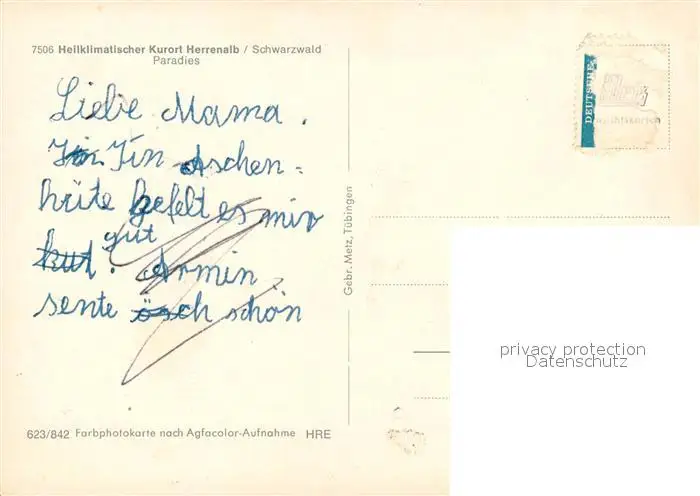 7506 Heilklimatischer Kurort Herrenalb / Schwarzwald
Paradies
Liebe Mama.
In Aschen=
hüte gefelt es mir
gut
kut. Armin
sente schön
Gebr. Metz, Tübingen
DEUTSCHE
privacy protection
Datenschutz
623/842 Farbphotokarte nach Agfacolor-Aufnahme HRE